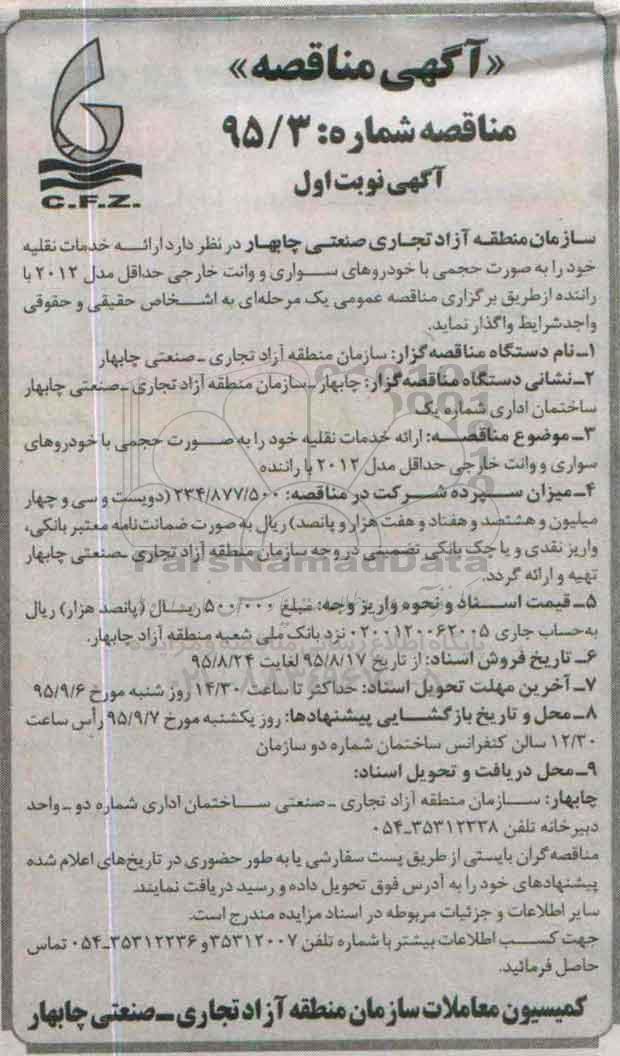 «آگهی مناقصه»
مناقصه شماره: ۹۵/۳
آگهی نوبت اول
C.F.Z.
سازمان منطقه آزاد تجاری صنعتی چابهار در نظر دارد ارائه خدمات نقلیه
خود را به صورت حجمی با خودروهای سواری و وانت خارجی حداقل مدل ۲۰۱۲ با
راننده از طریق برگزاری مناقصه عمومی یک مرحله‌ای به اشخاص حقیقی و حقوقی
واجد شرایط واگذار نماید.
۱ـ نام دستگاه مناقصه‌گزار: سازمان منطقه آزاد تجاری ـ صنعتی چابهار
۲ـ نشانی دستگاه مناقصه‌گزار: چابهار ـ سازمان منطقه آزاد تجاری ـ صنعتی چابهار
ساختمان اداری شماره یک
۳ـ موضوع مناقصه: ارائه خدمات نقلیه خود را به صورت حجمی با خودروهای
سواری و وانت خارجی حداقل مدل ۲۰۱۲ با راننده
۴ـ میزان سپرده شرکت در مناقصه: ۲۳۴/۸۷۷/۵۰۰ (دویست و سی و چهار
میلیون و هشتصد و هفتاد و هفت هزار و پانصد) ریال به صورت ضمانت‌نامه معتبر بانکی،
واریز نقدی و یا چک بانکی تضمینی در وجه سازمان منطقه آزاد تجاری ـ صنعتی چابهار
ParsNamadData
تهیه و ارائه گردد.
۵ـ قیمت اسناد و نحوه واریز وجه: مبلغ ۵۰۰/۰۰۰ ریال (پانصد هزار) ریال
به‌حساب جاری ۰۲۰۰۱۲۰۰۶۲۰۰۵ نزد بانک ملی شعبه منطقه آزاد چابهار.
۶ـ تاریخ فروش اسناد: از تاریخ ۹۵/۸/۱۷ لغایت ۹۵/۸/۲۴
۷ـ آخرین مهلت تحویل اسناد: حداکثر تا ساعت ۱۴/۳۰ روز شنبه مورخ ۹۵/۹/۶
۸ـ محل و تاریخ بازگشایی پیشنهادها: روز یکشنبه مورخ ۹۵/۹/۷ رأس ساعت
۱۲/۳۰ سالن کنفرانس ساختمان شماره دو سازمان
۹ـ محل دریافت و تحویل اسناد:
چابهار: سازمان منطقه آزاد تجاری ـ صنعتی ساختمان اداری شماره دو ـ واحد
دبیرخانه تلفن ۳۵۳۱۲۲۳۸ـ۰۵۴
مناقصه‌گران بایستی از طریق پست سفارشی یا به طور حضوری در تاریخ‌های اعلام شده
پیشنهادهای خود را به آدرس فوق تحویل داده و رسید دریافت نمایند.
سایر اطلاعات و جزئیات مربوطه در اسناد مزایده مندرج است.
جهت کسب اطلاعات بیشتر با شماره تلفن ۳۵۳۱۲۰۰۷ و ۳۵۳۱۲۲۳۶ـ۰۵۴ تماس
حاصل فرمائید.
کمیسیون معاملات سازمان منطقه آزاد تجاری ـ صنعتی چابهار